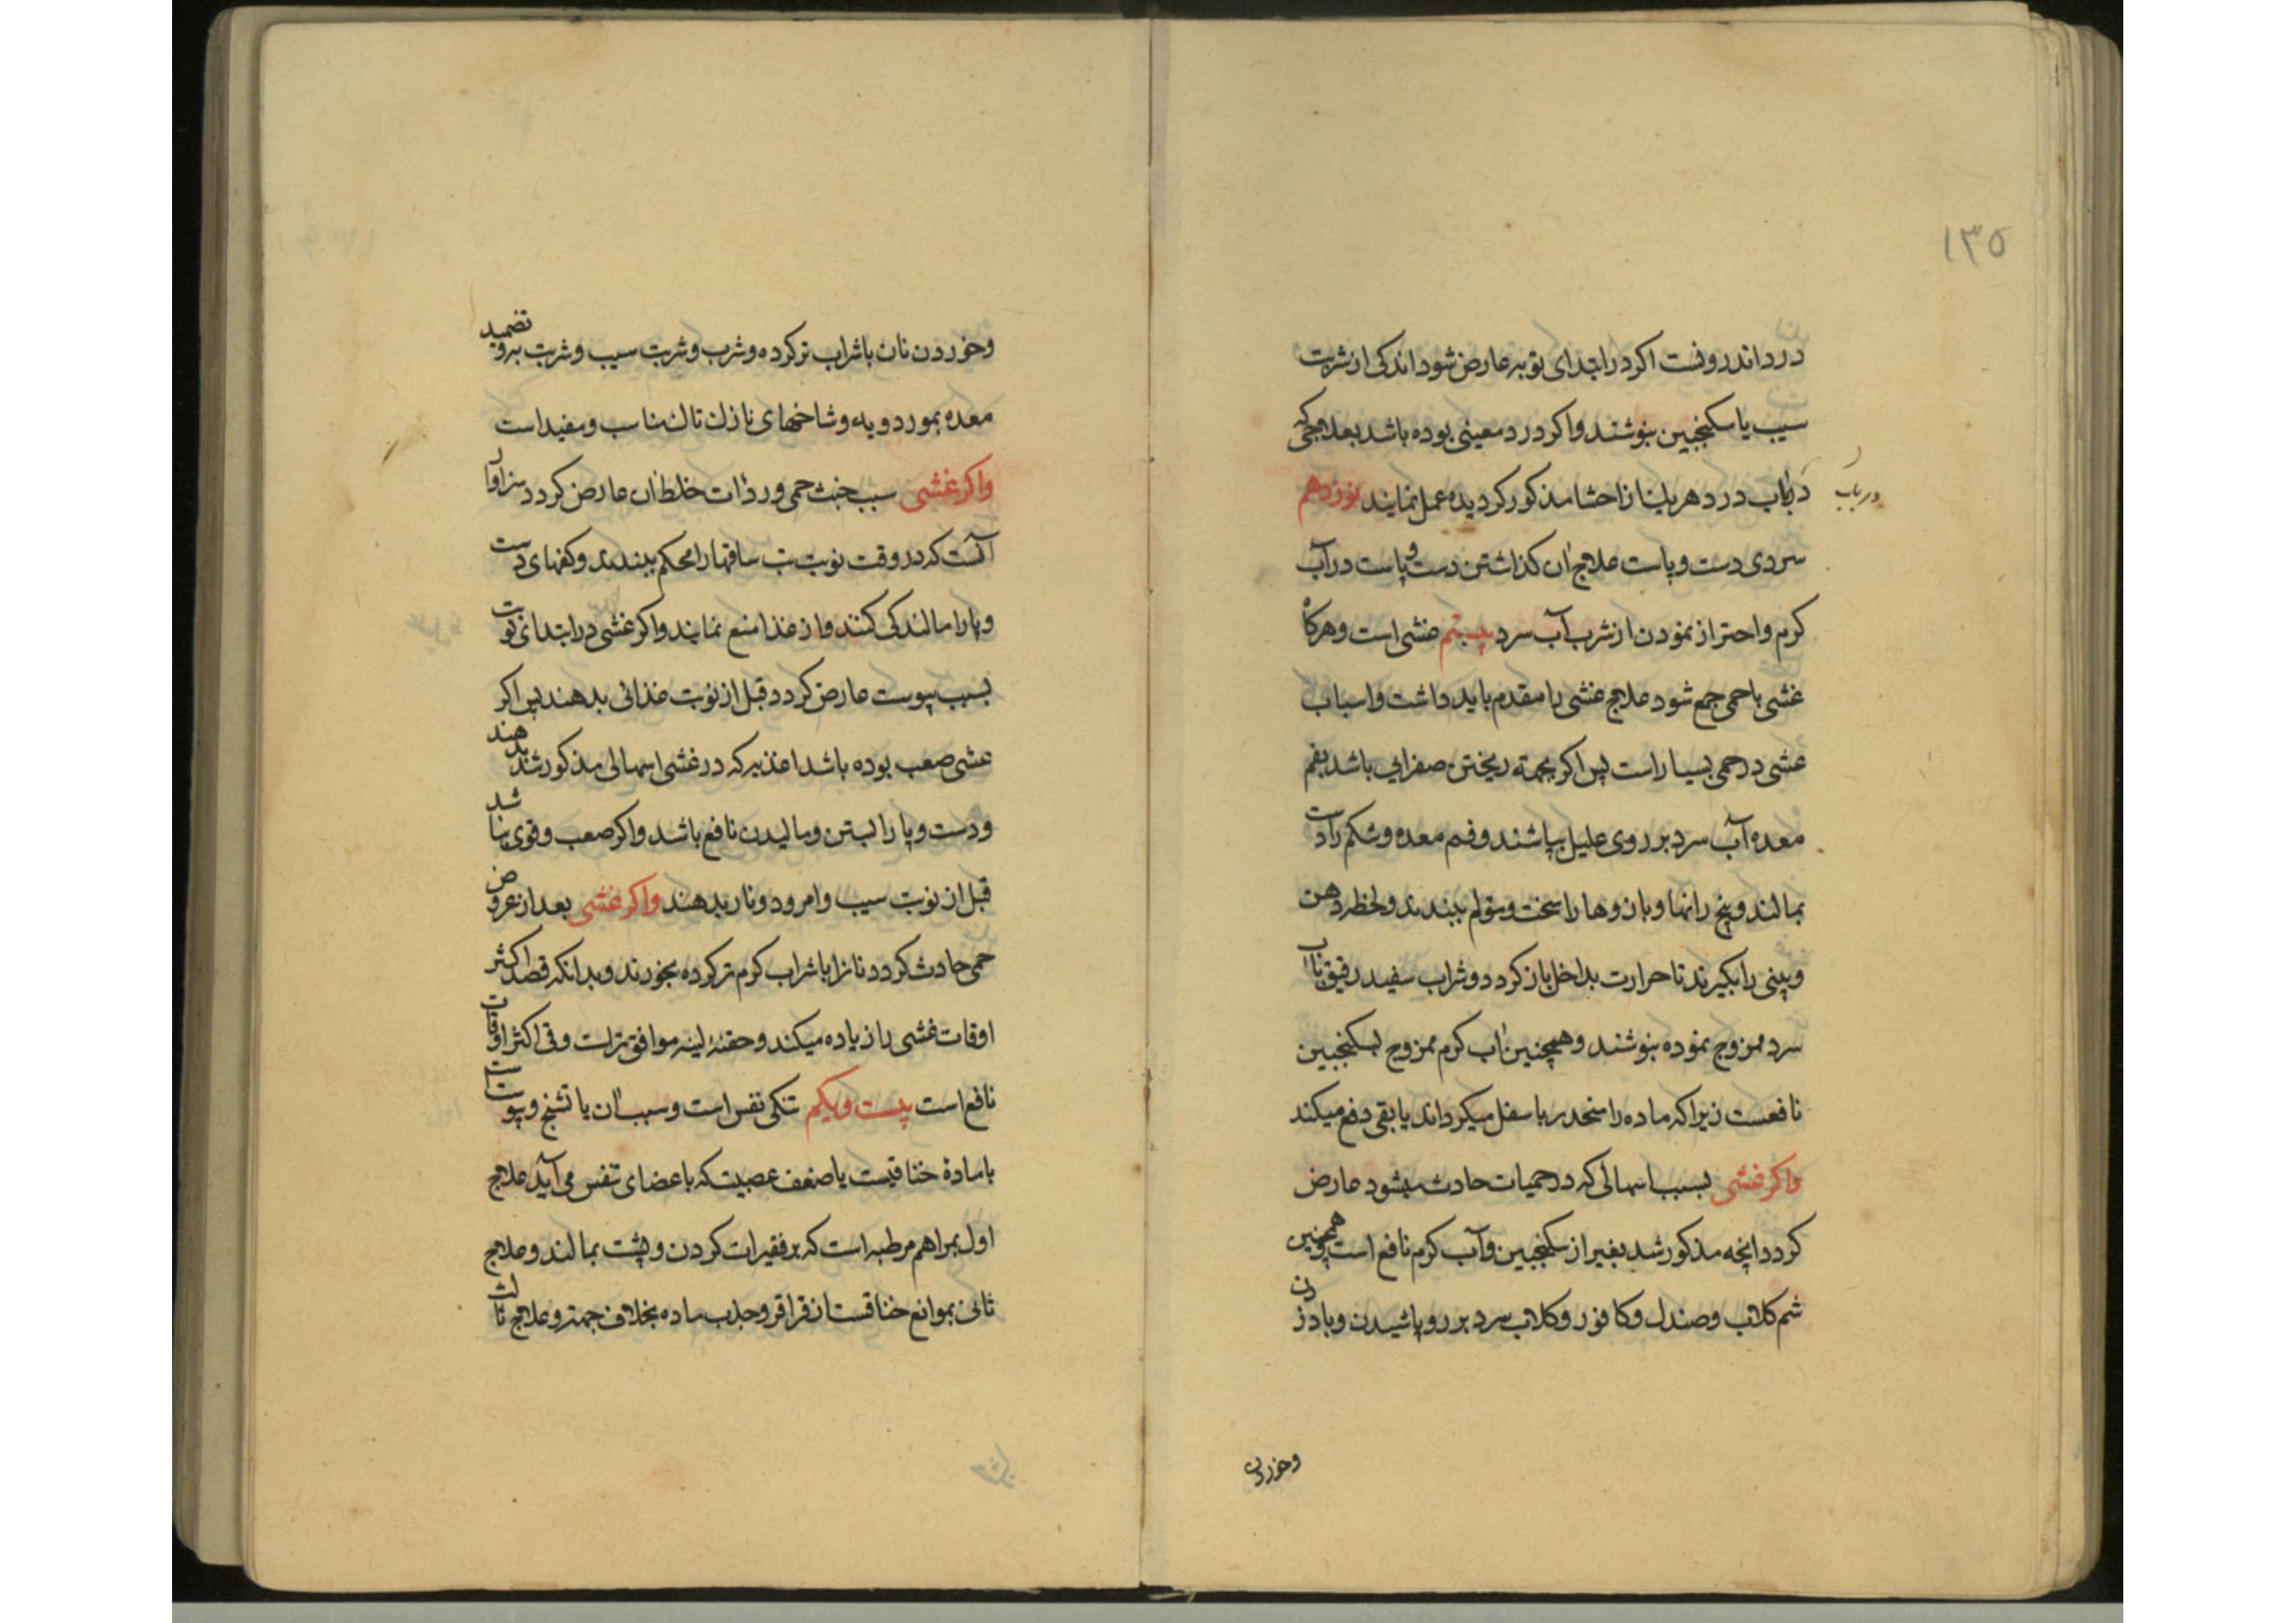 ۱۳۵
درد اندرونست اکر در ابتدای نوبه عارض شود اندکی از شربت
سیب یا سکنجبین بنوشند واکر درد معینی بوده باشد بعلاجی که
در باب درد هریک از احشا مذکور کردیده عمل نمایند نوزدهم
در باب
سردی دست وپاست علاج آن کذاشتن دست وپاست در آب
کرم واحتراز نمودن از شرب آب سرد بیستم غشی است وهرکاه
غشی با حمی جمع شود علاج غشی را مقدم باید داشت واسباب
غشی در حمی بسیار است پس اکر بجهته ریختن صفرایی باشد بفم
معده آب سرد بر روی علیل بپاشند وفم معده وشکم را دست
بمالند وبیخ رانها وبازوها را سخت ببندند ولحظه دهن
وبینی را بکیرند تا حرارت بداخل باز کردد وشراب سفید رقیق باآب
سرد ممزوج نموده بنوشند وهمچنین آب کرم ممزوج بسکنجبین
نافعست زیراکه ماده را منحدر باسفل میکرداند یا بقی دفع میکند
واکر غشی بسبب اسهالی که در حمیات حادث میشود عارض
کردد آنچه مذکور شد بغیر از سکنجبین وآب کرم نافع است وهمچنین
شم کلاب وصندل وکافور وکلاب سرد بر رو پاشیدن وباد زدن
وخوردن
وخوردن نان باشراب تر کرده وشرب وشربت سیب وشربت به وتضمید
معده بمورد و به وشاخهای نازک تاک مناسب ومفید است
واکر غشی سبب خبث حمی وردائت خلط آن عارض کردد سزاوار
آنست که در وقت نوبت تب ساقها را محکم ببندند وکفهای دست
وپا را مالندکی کنند واز غذا منع نمایند واکر غشی در ابتدای نوبت
بسبب یبوست عارض کردد قبل از نوبت غذائی بدهند پس اکر
غشی صعب بوده باشد اغذیه که در غشی اسهالی مذکور شد بدهند
ودست وپا را بستن ومالیدن نافع باشد واکر صعب وقوی نباشد
قبل از نوبت سیب وامرود ونار بدهند واکر غشی بعد از عروض
حمی حادث کردد نانرا باشراب کرم تر کرده بخورند وبدانکه فصد اکثر
اوقات غشی را زیاده میکند وحقنهٔ لینه موافق تر است وقی اکثر اوقات
نافع است بیست ویکم تنکی نفس است وسبب آن یا تشنج ویبوست
یا مادهٔ خناقیست یا ضعف عصبیت که باعضای تنفس می آید علاج
اول بمراهم مرطبه است که بر فقرات کردن وپشت بمالند وعلاج
ثانی بموانع خناقست از قراقر وجذب ماده بخلاف جهت وعلاج ثالث